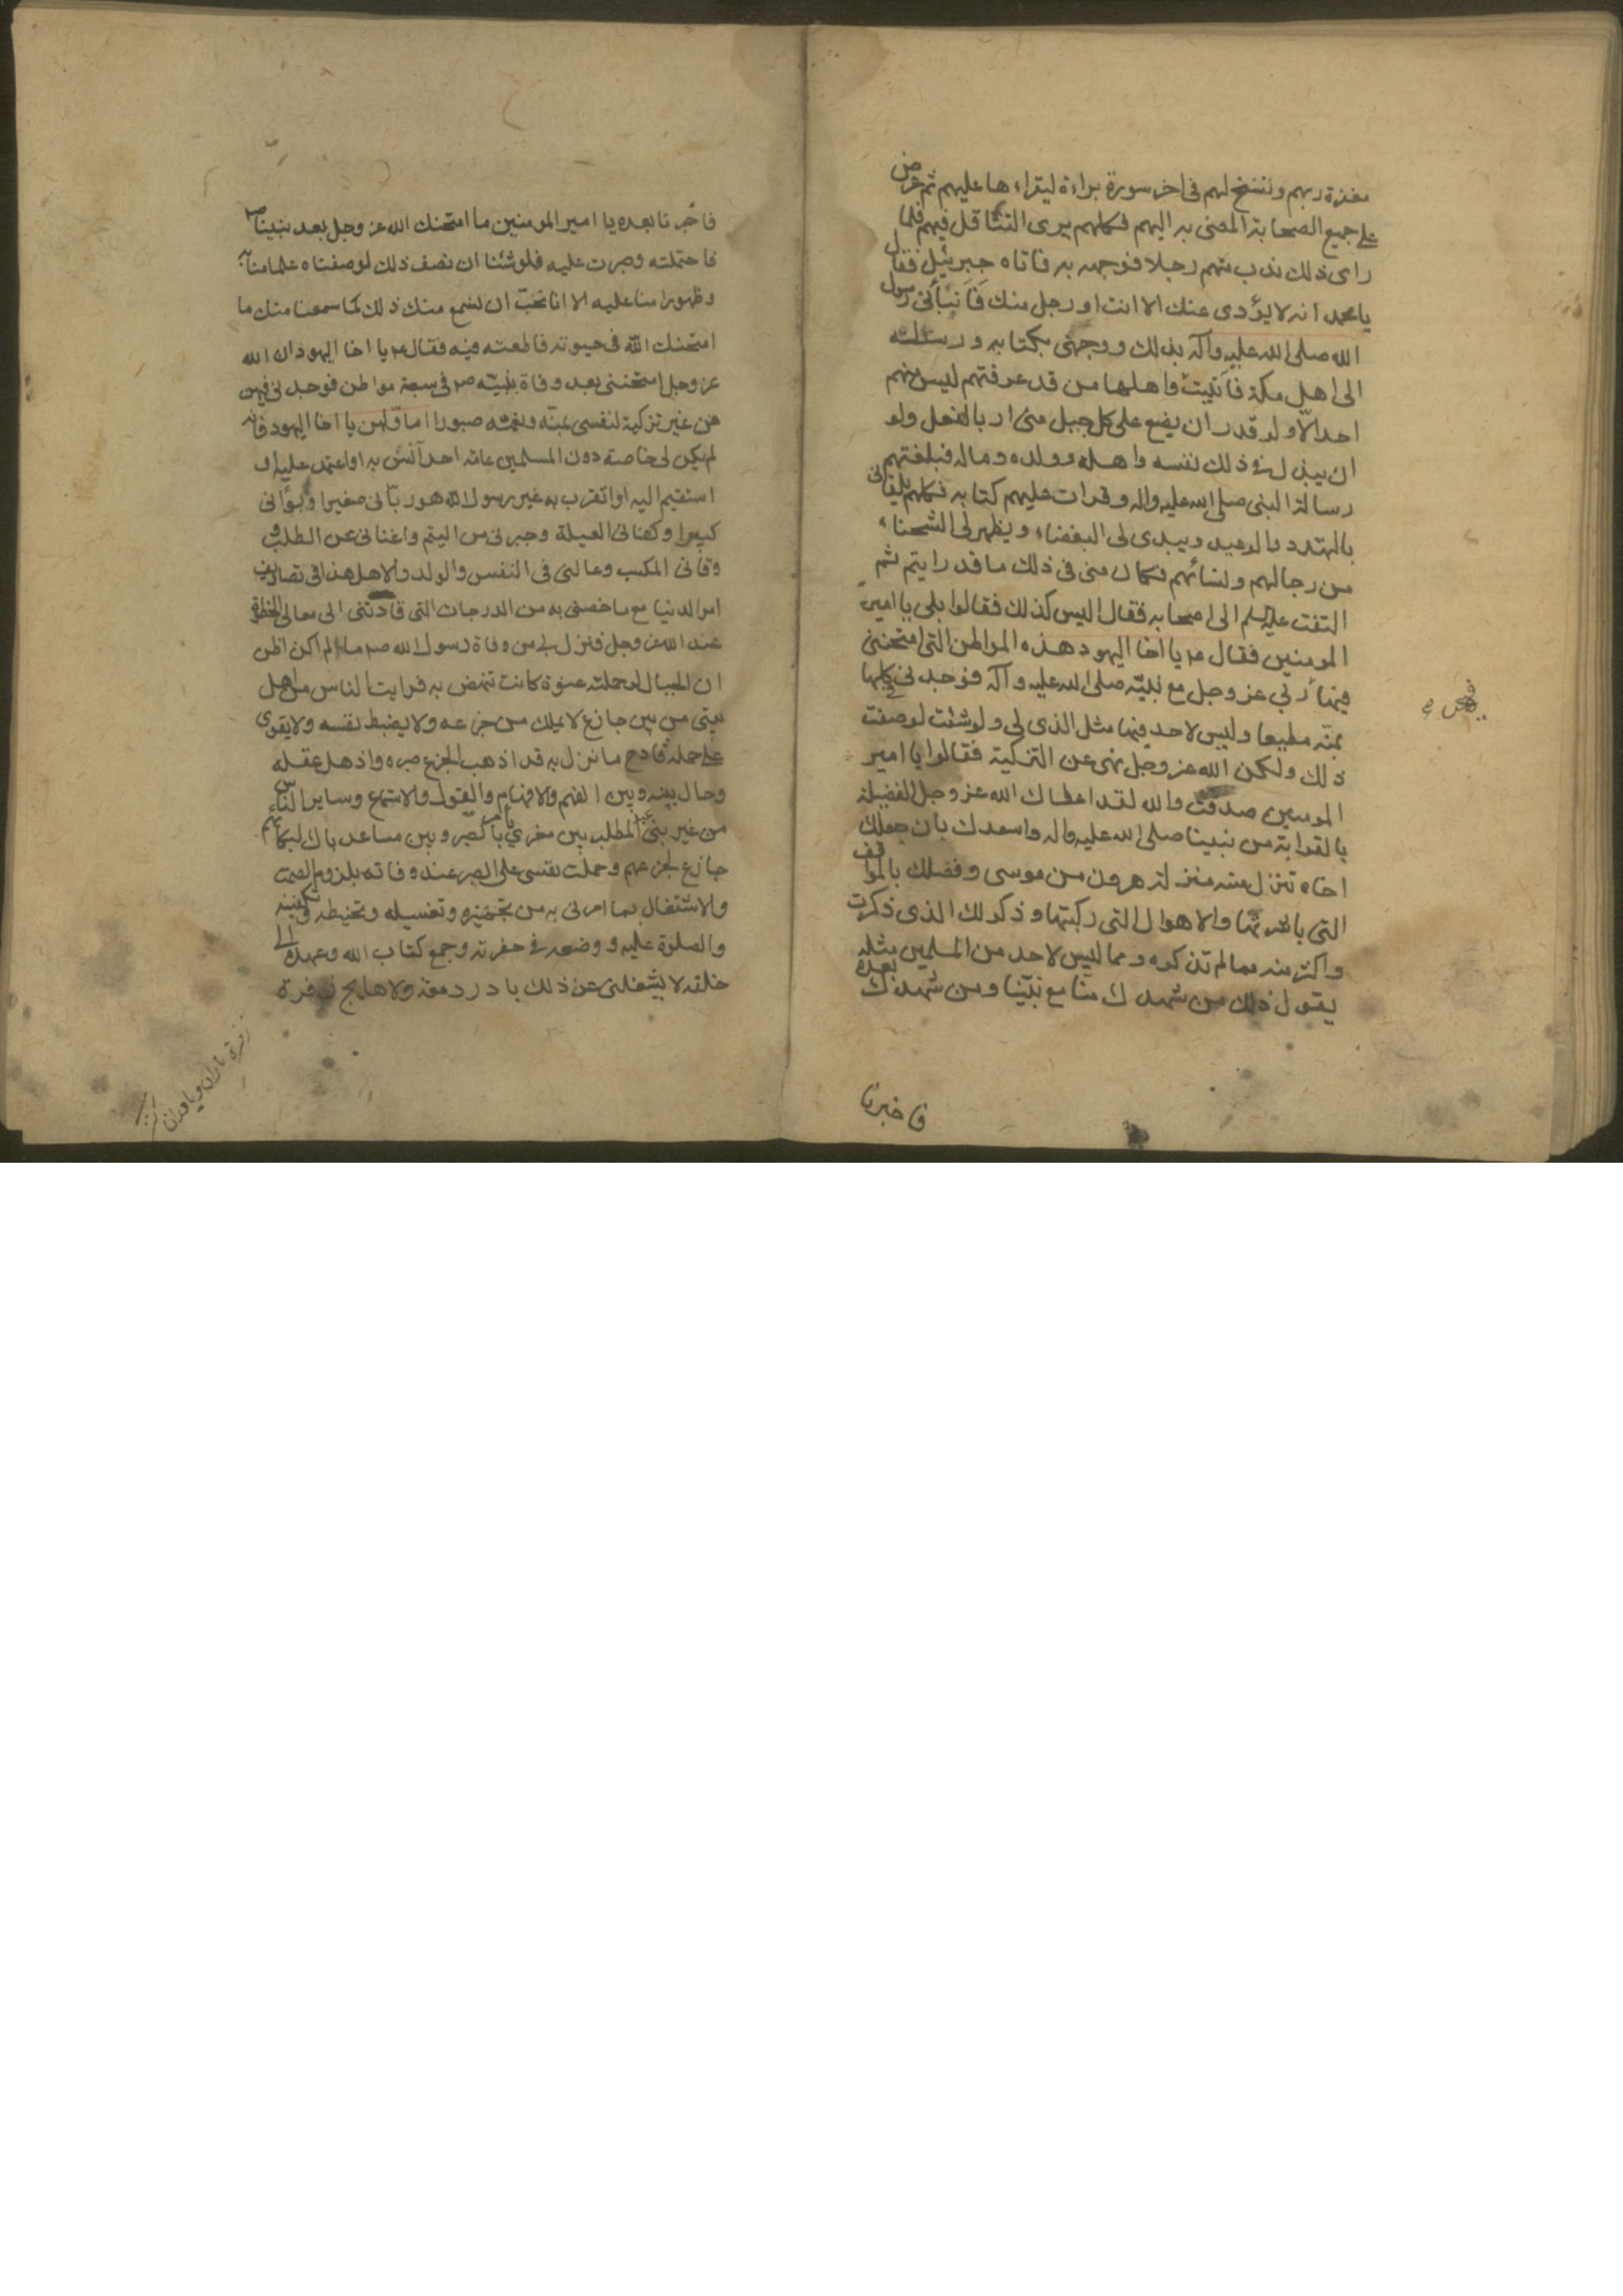 معذرة ربهم وننسخ لهم فى اخر سورة براءة ليقراءها عليهم ثم عرض
على جميع الصحابة المضى به اليهم فكلهم يرى التثاقل فيهم فلما
راى ذلك ندب منهم رجلا فوجهه به فاتاه جبرئيل فقال
يا محمد انه لا يؤدى عنك الا انت او رجل منك فانبأنى رسول
الله صلى الله عليه وآله بذلك ووجهنى بكتابه ورسالته
الى اهل مكة فاتيت واهلها من قد عرفتهم ليس منهم
احد الا ولو قدر ان يضع على كل جبل منى اربا لفعل ولو
ان يبذل فى ذلك نفسه واهله وولده وماله فبلغتهم
رسالة النبى صلى الله عليه واله وقرات عليهم كتابه فكلهم يلقانى
بالتهدد والوعيد ويبدى لى البغضاء ويظهر لى الشحناء
من رجالهم ونسائهم فكان منى فى ذلك ما قد رايتم ثم
التفت عليه السلم الى اصحابه فقال اليس كذلك فقالوا بلى يا امير
المومنين فقال ع يا اخا اليهود هذه المواطن التى امتحننى
فيها ربى عز وجل مع نبيه صلى الله عليه وآله فوجدنى فى كلها
بمنه مطيعا وليس لاحد فيها مثل الذى لى ولو شئت لوصفت
ذلك ولكن الله عز وجل نهى عن التزكية فقالوا يا امير
المومنين صدقت والله لقد اعطاك الله عز وجل الفضيلة
بالقرابة من نبينا صلى الله عليه واله واسعدك بان جعلك
اخاه تنزل منه منزلة هرون من موسى وفضلك بالمواقف
التى باشرتها والاهوال التى ركبتها وذكر لك الذى ذكرت
واكثر منه مما لم تذكره ومما ليس لاحد من المسلمين مثله
يقول ذلك من شهدك منا مع نبينا ومن شهدك بعده
فاخبرنا
فاخبرنا بعده يا امير المومنين ما امتحنك الله عز وجل بعد نبينا ص
فاحتملته وصبرت عليه فلو شئنا ان نصف ذلك لوصفناه علما منا به
وظهورا منا عليه الا انا نحب ان نسمع منك ذلك كما سمعنا منك ما
امتحنك الله فى حيوته فاطعته فيه فقال ع يا اخا اليهود ان الله
عز وجل امتحننى بعد وفاة نبيه ص فى سبعة مواطن فوجدنى فيهن
من غير تزكية لنفسى بمنه ونعمته صبورا اما اولهن يا اخا اليهود فانه
لم يكن لى خاصة دون المسلمين عامة احد آنس به او اعتمد عليه او
استقيم اليه او اتقرب به غير رسول الله هو ربانى صغيرا وبوأنى
كبيرا وكفانى العيلة وجبرنى من اليتم واغنانى عن الطلب و
وقانى المكسب وعالنى فى النفس والولد والاهل هذا فى تصاريف
امر الدنيا مع ما خصنى به من الدرجات التى قادتنى الى معالى الحظوة
عند الله عز وجل فنزل بى من وفاة رسول الله ص ما لم اكن اظن
ان الجبال لو حملته عنوة كانت تنهض به فرايت الناس من اهل
بيتى من بين جازع لا يملك من جزعه ولا يضبط نفسه ولا يقوى
على حمله قادح ما نزل به قد اذهب الجزع صبره واذهل عقله
وحال بينه وبين الفهم والافهام والقول والاستماع وساير الناس
من غير بنى عبد المطلب بين معزى يأمر بالصبر وبين مساعد باك لبكائهم
جازع لجزعهم وحملت نفسى على الصبر عند وفاته بلزوم الصمت
والاشتغال بما امرنى به من تجهيزه وتغسيله وتحنيطه وتكفينه
والصلوة عليه ووضعه فى حفرته وجمع كتاب الله وعهده الى
خلقه لا يشغلنى عن ذلك بادر دمعة ولا هايج زفرة